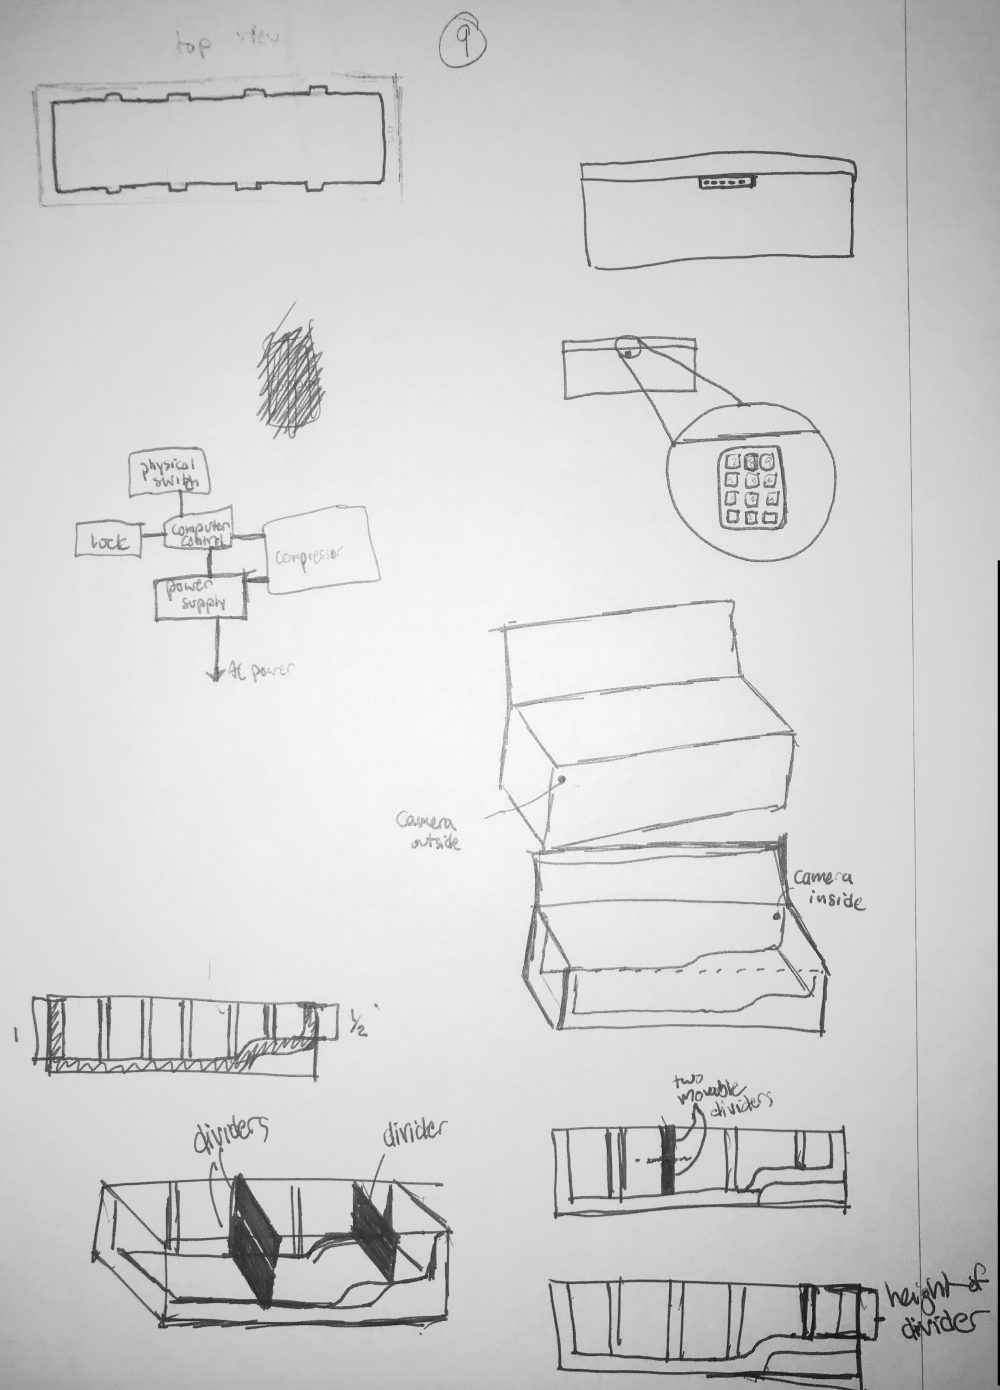 9
top view
physical
switch
lock
computer
control
compressor
power
supply
AC power
Camera
outside
camera
inside
1
1/2
dividers
divider
two
movable
dividers
height of
divider